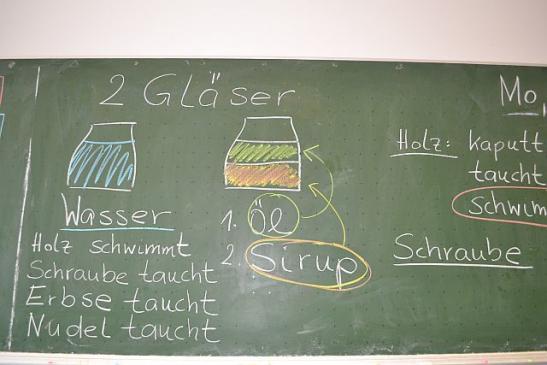 2 Gläser
Wasser
Holz schwimmt
Schraube taucht
Erbse taucht
Nudel taucht
1. Öl
2. Sirup
Mo,
Holz: kaputt
taucht
schwim
Schraube